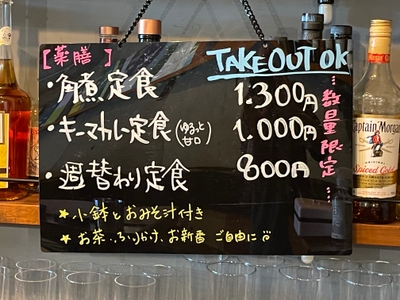 【薬膳】 TAKEOUT OK
・角煮定食 1.300円
・キーマカレー定食(ゆるっと甘口) 1.000円
・週替わり定食 800円
…数量限定…
★小鉢とおみそ汁付き
★お茶、ふりかけ、お新香 ご自由に
Captain Morgan
ORIGINAL
Spiced Gold